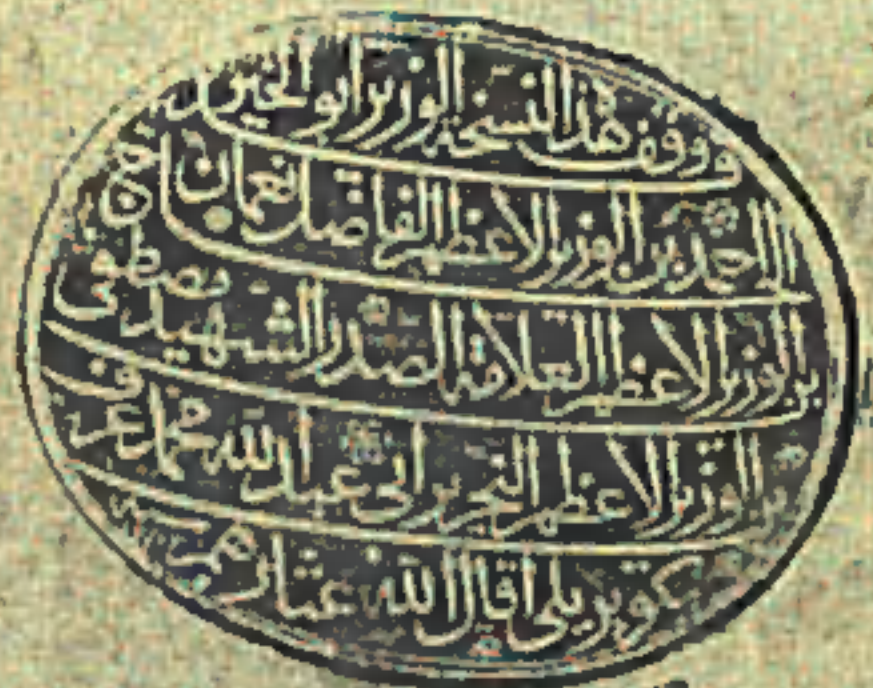 ووقف هذا النسخة الوزير ابو الخير
الحاج احمد بن الوزير الاعظم الفاضل نعمان
بن الوزير الاعظم العلامة الصدر الشهيد مصطفى
بن الوزير الاعظم النحرير ابي عبد الله محمد عرف
بكوبريلي اقال الله عثارهم